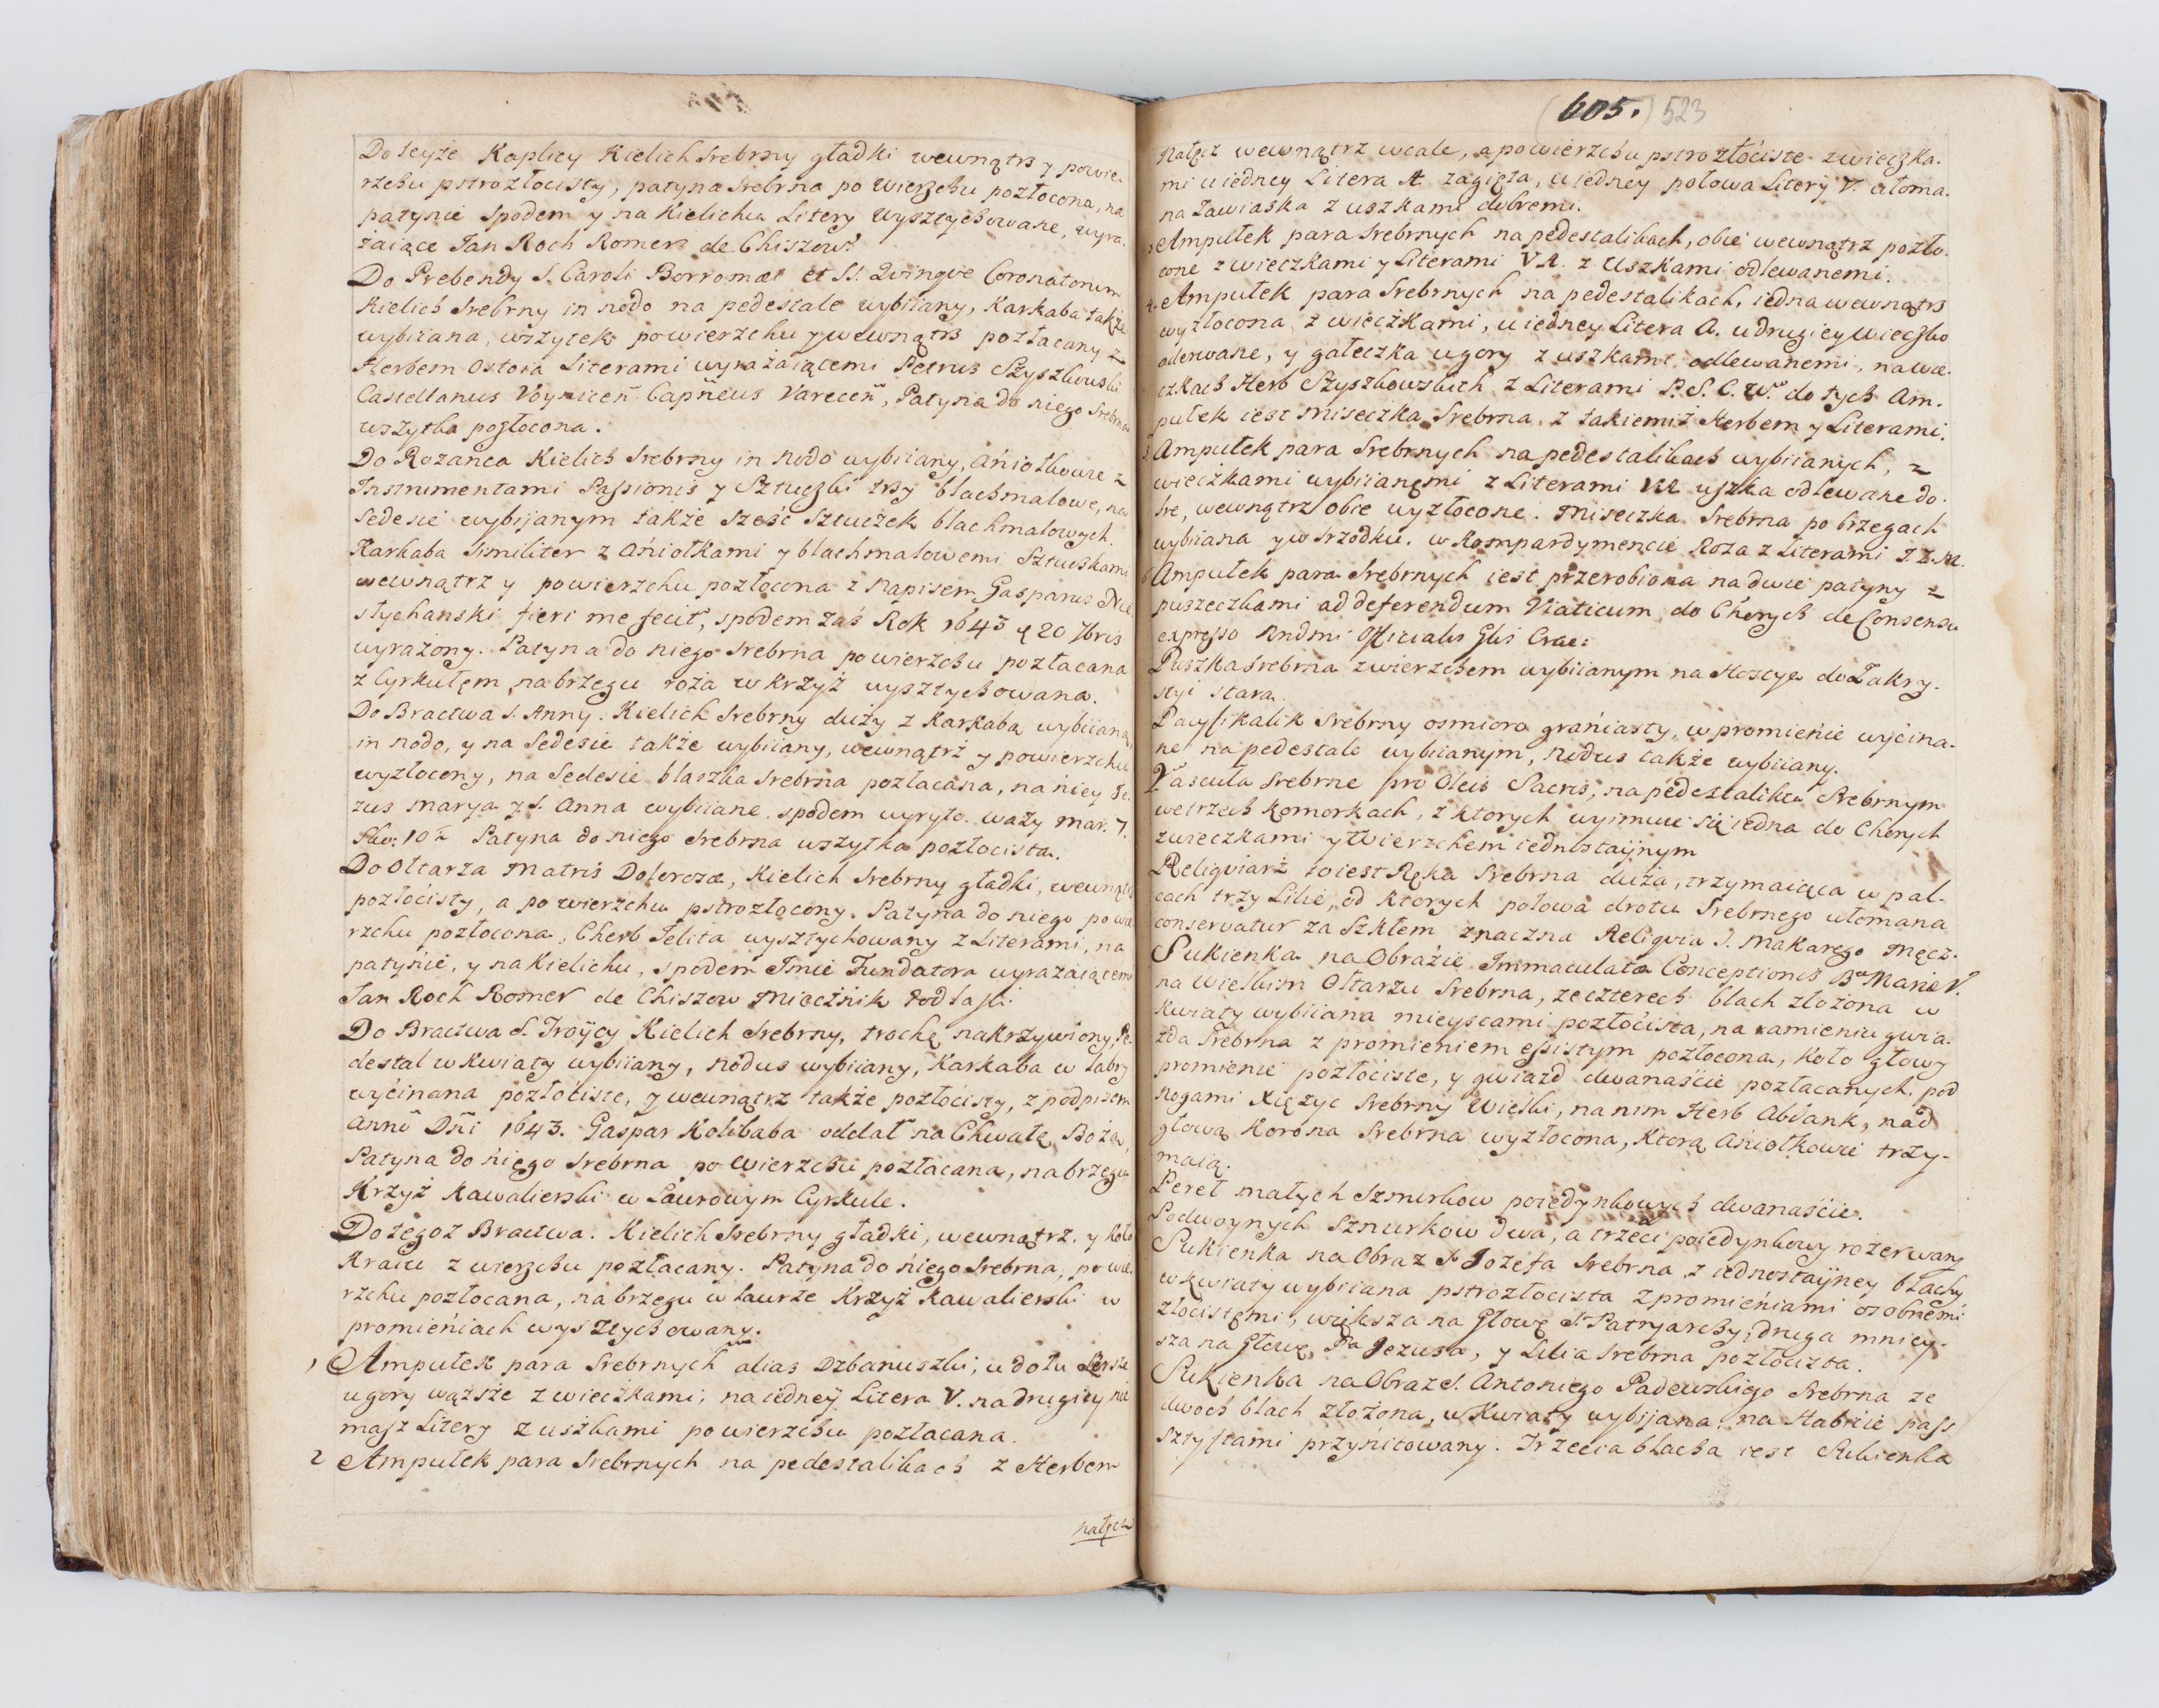 Do teyże Kaplicy Kielich Srebrny gładki wewnątrz y powie-
rzchu pstrozłocisty, patyna Srebrna po wierzchu pozłocona, na
patynie spodem y na Kielichu Litery wysztychowane, wyra-
żaiące Jan Roch Romer de Chiszow.
Do Prebendy S. Caroli Borromæi et SS. Qvinqve Coronatorum
Kielich Srebrny in nodo na pedestale wybiiany, Karkaba także
wybiiana, wszytek powierzchu y wewnątrz pozłacany z
Herbem Ostoia Literami wyrażaiącemi Petrus Szyszkowski
Castellanus Voynicen Capneus Varecen, Patyna do niego Srebrna
wszytka pozłocona.
Do Rozanca Kielich Srebrny in Nodo wybiiany, Aniołkowie z
Instrumentami Passionis y Sztuczki trzy blachmalowe, na
Sedesie wybijanym także sześć sztuczek blachmalowych.
Karkaba similiter z Aniołkami y blachmalowemi Sztuczkami
wewnątrz y powierzchu pozłocona z Napisem Gasparus Nie
słychanski fieri me fecit, spodem zaś Rok 1643 q 20 7bris
wyrażony. Patyna do niego Srebrna powierzchu pozłacana
z Cyrkułem, na brzegu roża w krzyż wysztychowana.
Do Bractwa S. Anny. Kielich Srebrny duży z Karkabą wybiianą,
in nodo, y na Sedesie także wybiiany, wewnątrz y powierzchu
wyzłocony, na Sedesie blaszka Srebrna pozłacana, na niey Je-
zus Marya y S. Anna wybiiane. spodem wyryto. waży mar. 7.
Sko: 10 Patyna do niego Srebrna wszytka pozłocista.
Do Ołtarza Matris Dolorosæ, Kielich Srebrny gładki, wewnątrz
pozłocisty, a po wierzchu pstrozłocony. Patyna do niego po wie
rzchu pozłocona, Cherb Jelita wysztychowany z Literami, na
patynie, y na Kielichu, spodem Imie Fundatora wyrażaiącemi
Jan Roch Romer de Chiszow Miecznik Podlaski.
Do Bractwa S. Troycy Kielich Srebrny, trochę nakrzywiony, Pe-
destal w Kwiaty wybiiany, Nodus wybiiany, Karkaba w labry
wyćinana pozłociste, y wewnątrz także pozłócisty, z podpisem
Anno Dni 1643. Gaspar Kolibaba oddał na Chwałę Bożą,
Patyna do niego Srebrna po wierzchu pozłacana, na brzegu
Krzyż Kawalierski w Laurowym Cyrkule.
Do tegoż Bractwa. Kielich Srebrny gładki, wewnątrz, y koło
Kraiu z wierzchu pozłacany. Patyna do niego Srebrna, po wie-
rzchu pozłocana, na brzegu w laurze Krzyż Kawalierski w
promieniach wysztychowany.
1 Ampułek para Srebrnych alias Dzbanuszki, u dołu szersze
u gory węższe z wieczkami, na iedney Litera V. na drugiey nie
masz Litery z uszkami po wierzchu pozłacana.
2 Ampułek para Srebrnych na pedestalikach z Herbem
Nałęcz
605. 523
Nałęcz wewnątrz wcale, a powierzchu pstrozłóciste z wieczka-
mi u iedney Litera A zagięta, u iedney połowa Litery V. ułoma-
na Zawiaska z uszkami dobremi.
3 Ampułek para Srebrnych na pedestalikach, obie wewnątrz pozło-
cone z wieczkami y Literami VA. z Uszkami odlewanemi.
4. Ampułek para Srebrnych na pedestalikach, iedna wewnątrz
wyzłocona z wieczkami, u iedney Litera A. u drugiey wieczko
oderwane, y gałeczka u gory z uszkami odlewanemi, na wie-
czkach Herb Szyszkowskich z Literami P. S. C. W. do tych Am-
pułek iest miseczka Srebrna z takiemiż Herbem y Literami.
5 Ampułek para Srebrnych na pedestalikach wybiianych, z
wieczkami wybiianemi z Literami VA uszka odlewane do-
bre, wewnątrz obie wyzłocone. Miseczka Srebrna po brzegach
wybiiana y w srzodku. w Kompardymencie Roza z Literami J. Z. M.
6 Ampułek para Srebrnych iest przerobiona na dwie patyny z
puszeczkami ad deferendum Viaticum do Chorych de Consensu
expresso Rndmi Officialis Glis Crac:
Puszka srebrna z wierzchem wybiianym na Hostye do Zakry-
styi stara
Pacyfikalik Srebrny osmioro graniasty, w promienie wycina-
ne na pedestale wybiianym, Nodus także wybiiany.
Vascula Srebrne pro Oleis Sacris, na pedestaliku Srebrnym
we trzech komorkach, z ktorych wyimuie się iedna do Chorych
z wieczkami y Wierzchem iednostaynym
Religviarż to iest Ręka Srebrna duża, trzymaiąca w pal-
cach trzy Lilie, od ktorych połowa drotu Srebrnego ułomana
conservatur za Szkłem znaczna Religvia S. Makarego Męcz.
Sukienka na Obrazie Immaculatæ Conceptionis B. Mariæ V.
na Wielkim Ołtarzu Srebrna, ze czterech blach złożona w
Kwiaty wybiiana mieyscami pozłócista, na ramieniu gwia-
zda Srebrna z promieniem essistym pozłocona, koło głowy
promienie pozłociste, y gwiazd dwanaście pozłacanych. pod
Nogami Xiężyc Srebrny Wielki, na nim Herb Abdank, nad
głową Korona Srebrna wyzłocona, ktorą Aniołkowie trzy-
maią.
Pereł małych Sznurkow poiedynkowych dwanaście.
Podwoynych Sznurkow dwa, a trzeci poiedynkowy rozerwany
Sukienka na Obraz S. Jozefa Srebrna z iednostayney blachy
w kwiaty wybiiana pstrozłocista z promieniami osobnemi
złocistemi, większa na Głowę S. Patryarchy, druga mniey-
sza na Głowę Pa Jezusa, y Lilia Srebrna pozłocista.
Sukienka na Obraz S. Antoniego Padewskiego Srebrna ze
dwoch blach złożona, w Kwiaty wybijana, na Habicie pass
sztyftami przynitowany. Trzecia blacha iest Sukienka